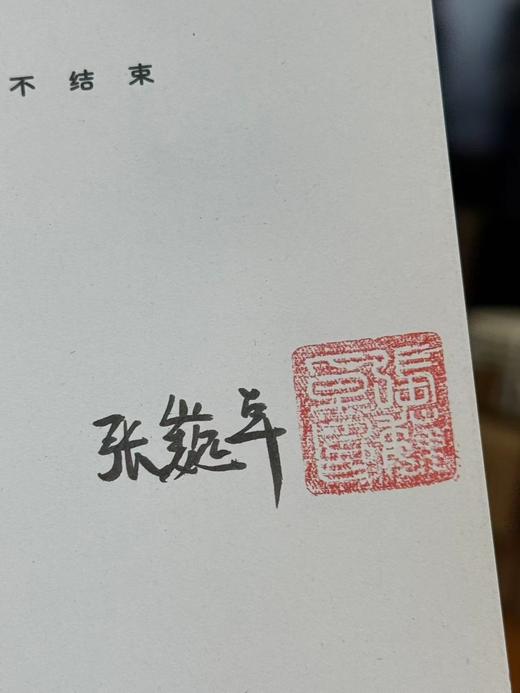 不结束
张巍卓